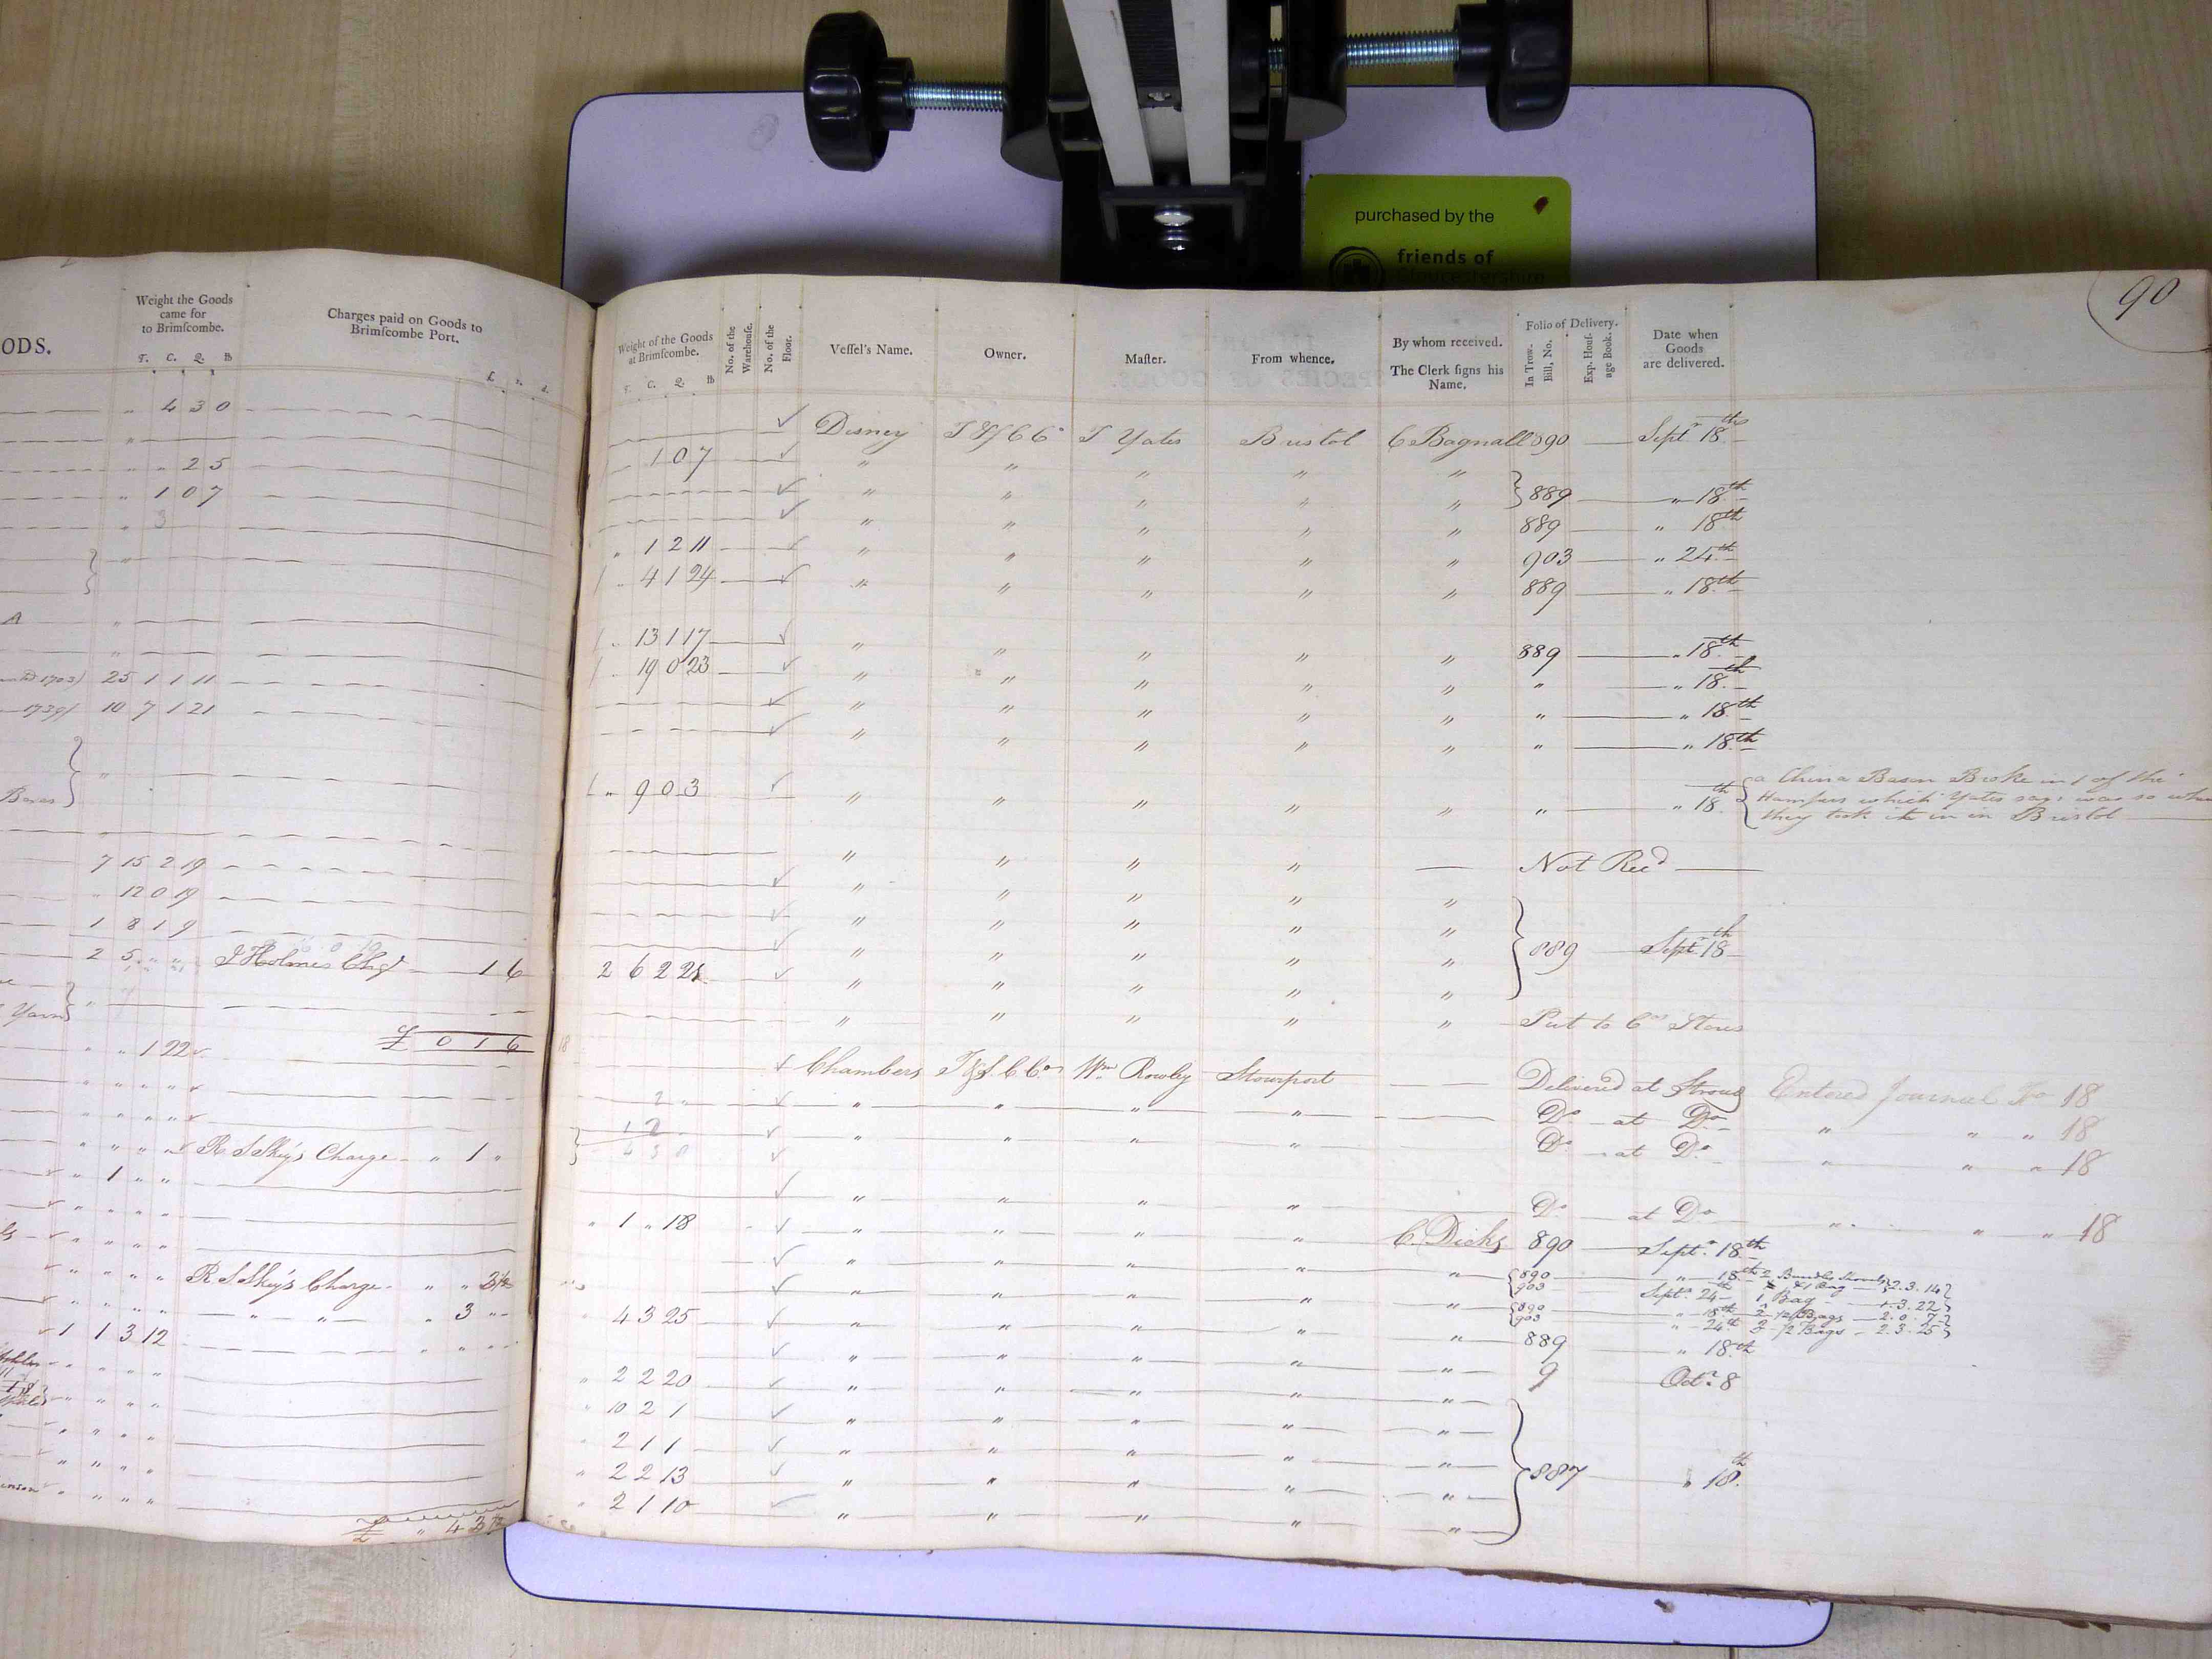 purchased by the
friends of
90
ODS.
Weight the Goods
came for
to Brimſcombe.
T. C. Q. lb
Charges paid on Goods to
Brimſcombe Port.
£. s. d.
" 4 3 0
" " 2 5
" 1 0 7
" 3
A
25 1 1 11
1739) 10 7 1 21
Boxes
7 15 2 19
" 12 0 19
1 8 1 9
2 5 " " J Holmes Chgs 1 6
Yarn
£ 0 1 6
" " 1 22
" " " "
" " " "
" " " " R S Skey's Charge " 1 "
" 1 " "
" " " "
" " " "
" " " " R S Skey's Charge " " 3½
" " " " " " " 3 "
1 1 3 12
" " " "
" " " "
" " " "
" " " "
" " " "
£ " 4 3½
Weight of the Goods
at Brimſcombe.
T. C. Q. lb
No. of the
Warehouſe.
No. of the
Floor.
Veſſel's Name.
Owner.
Maſter.
From whence.
By whom received.
The Clerk ſigns his
Name.
Folio of Delivery.
In Trow.
Bill, No.
Exp. Houſ-
age Book.
Date when
Goods
are delivered.
Disney T Yates Bristol C Bagnall 890 Septr 18th
1 0 7 " " " " "
" " " " " 889 " 18th
" " " " " 889 " 18th
" 1 2 11 " " " " " 903 " 24th
" 4 1 24 " " " " " 889 " 18th
" 13 1 17 " " " " " 889 " 18th
" 19 0 23 " " " " " " " 18th
" " " " " " " 18th
" " " " " " " 18th
" 9 0 3 " " " " " " " 18th
a China Bason Broke in 1 of the
Hampers which Yates says was so when
they took it in in Bristol
" " " " Not Recd
" " " " "
" " " " "
" " " " " 889 Septr 18th
2 6 2 21 " " " " "
" " " " " Put to Cos Stores
Chambers Wm Rowley Stourport Delivered at Stroud Entered Journal No 18
2 " " " " " Do at Do " " " 18
1 2 " " " " Do at Do " " " 18
4 3 0
" " " " Do at Do " " " 18
" 1 " 18 " " " " C. Dicks 890 Septr 18th
" " " " " 890 " 18th 2 Bundles Shovels & 1 Bag 2.3.14
903 Septr 24th 1 Bag 3.22
4 3 25 " " " " " 890 " 18th 2 Bags 2.0.7
903 " 24th 2 Bags 2.3.25
" " " " " 889 " 18th
" 2 2 20 " " " " " 9 Octr 8
" 10 2 1 " " " " "
" 2 1 1 " " " " "
" 2 2 13 " " " " " 887 " 18th
" 2 1 10 " " " " "